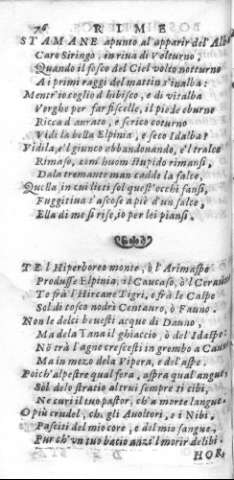 76 RIME
STAMANE apunto al apparir del' Alba
Caro Siringo, in riua di Volturno,
Quando il fosco del Ciel volto notturno
A i primi raggi del mattin s'inalba:
Mentr'io coglio d'hibisco, e di vitalba
Verghe per far fiscelle, il pie de eburno
Ricca d'aurato, e serico coturno
Vidi la bella Elpinia, e seco Idalba?
Vidila, e'l giunco abbandonando, e'l tralce
Rimaso, com'huom stupido rimansi,
Dala tremante man cadde la falce,
Quella in cui lieti sol quest'occhi fansi,
Fuggitiua s'ascose a piè d'un salce,
Ella di me si rise, io per lei piansi.
TE l'Hiperboreo monte, ò l'Arimaspo
Produsse Elpinia, il Caucaso, ò'l
Te frà l'Hircane Tigri, e frà le Caspe
Sol di tosco nodrì Centauro, ò Fauno.
Non le delci beuesti acque di Dauno,
Ma dela Tana il ghiaccio, ò del Idaspe:
Nò trà l'agne crescesti in grembo a
Ma in mezo dela Vipera, e del'aspe.
Poich'alpestre qual fora, aspra qual angue,
Sòl delo stratio altrui sempre ti cibi,
Ne curi il tuo pastor, ch'a morte langue.
O più crudel, che gli Auoltori, e i Nibi,
Pasciti del mio core, e del mio sangue,
Pur ch'vn tuo bacio anzi'l morir delibi.
HOR